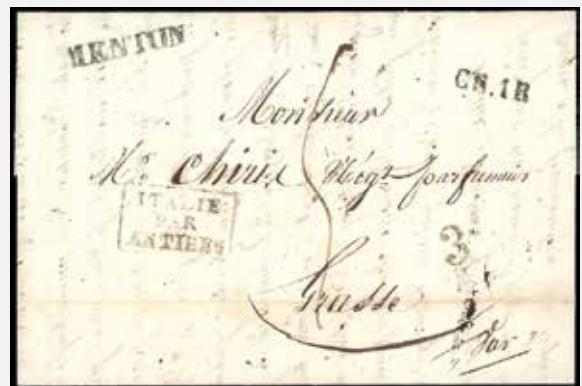 MENTON
CS.1R
Monsieur
Mr. Chiris Négt. parfumeur
ITALIE
PAR
ANTIBES
3
Grasse
Var